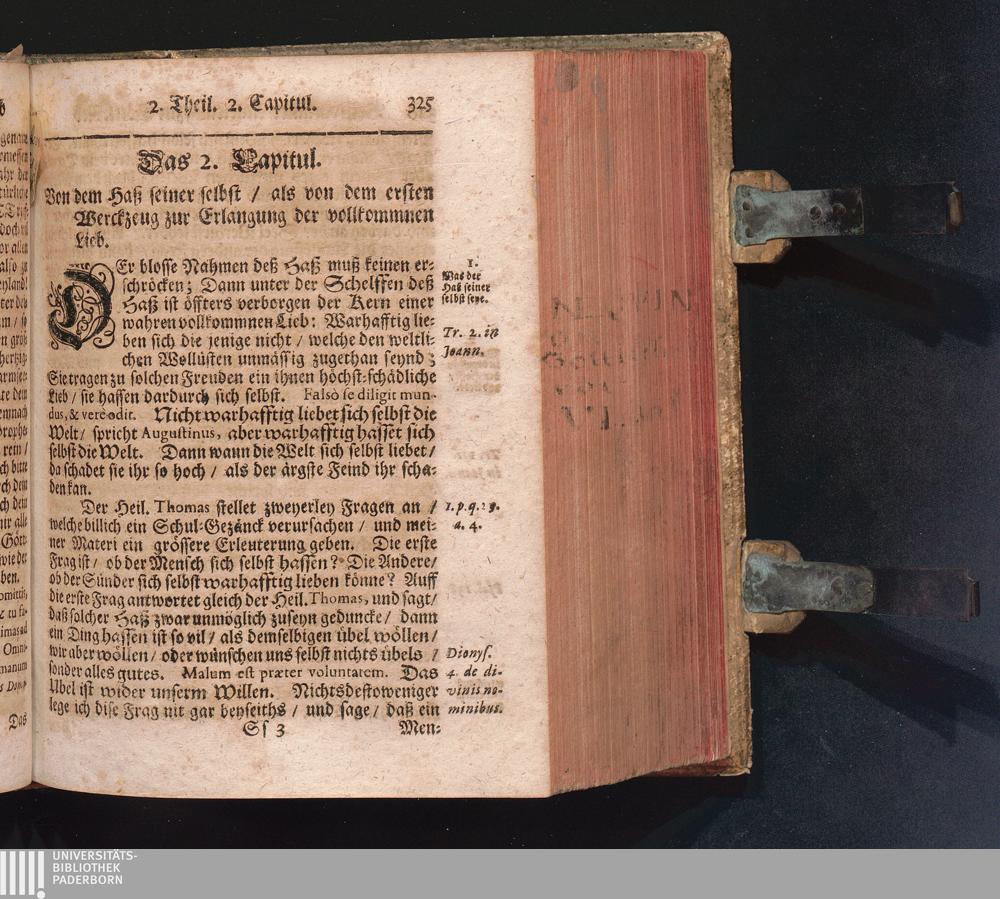 2. Theil. 2. Capitul. 325
Das 2. Capitul.
Von dem Haß seiner selbst / als von dem ersten
Werckzeug zur Erlangung der vollkommnen
Lieb.
DEr blosse Nahmen deß Haß muß keinen er-
schröcken; Dann unter der Schelffen deß
Haß ist öffters verborgen der Kern einer
wahren vollkommnen Lieb: Warhafftig lie-
ben sich die jenige nicht / welche den weltli-
chen Wollüsten unmässig zugethan seynd;
Sie tragen zu solchen Freuden ein ihnen höchst-schädliche
Lieb / sie hassen dardurch sich selbst. Falsò se diligit mun-
dus, & verè odit. Nicht warhafftig liebet sich selbst die
Welt / spricht Augustinus, aber warhafftig hasset sich
selbst die Welt. Dann wann die Welt sich selbst liebet /
da schadet sie ihr so hoch / als der ärgste Feind ihr scha-
den kan.
Der Heil. Thomas stellet zweyerley Fragen an /
welche billich ein Schul-Gezänck verursachen / und mei-
ner Materi ein grössere Erleuterung geben. Die erste
Frag ist / ob der Mensch sich selbst hassen? Die Andere /
ob der Sünder sich selbst warhafftig lieben könne? Auff
die erste Frag antwortet gleich der Heil. Thomas, und sagt /
daß solcher Haß zwar unmöglich zuseyn geduncke / dann
ein Ding hassen ist so vil / als demselbigen übel wöllen /
wir aber wöllen / oder wünschen uns selbst nichts übels /
sonder alles gutes. Malum est præter voluntatem. Das
Übel ist wider unserm Willen. Nichtsdestoweniger
lege ich dise Frag nit gar beyseiths / und sage / daß ein
Sf 3 Men-
1.
Was der
Haß seiner
selbst seye.
Tr. 2. in
Joann.
1. p. q. 29.
a. 4.
Dionys.
4. de di-
vinis no-
minibus.
Das
UNIVERSITÄTS-
BIBLIOTHEK
PADERBORN